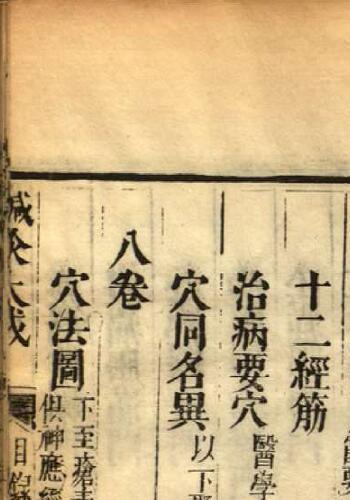 十二經筋
治病要穴 醫學
穴同名異 以下
八卷
穴法圖 下至瘡
俱神應經
鍼灸大成
目錄